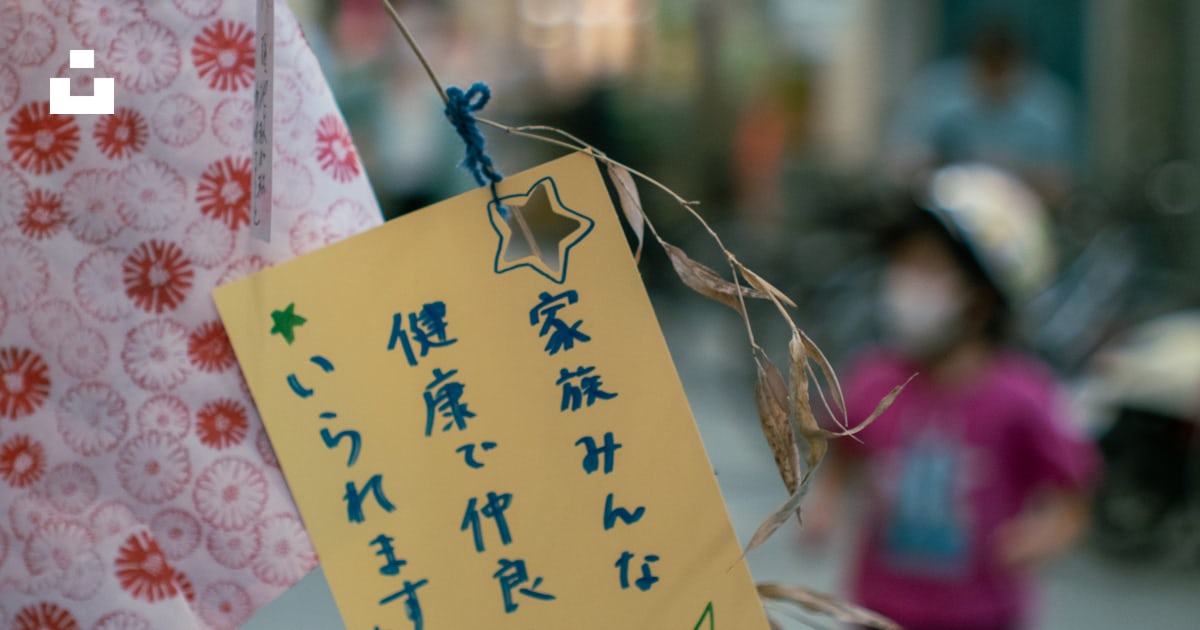 家族みんな
健康で仲良
いられます